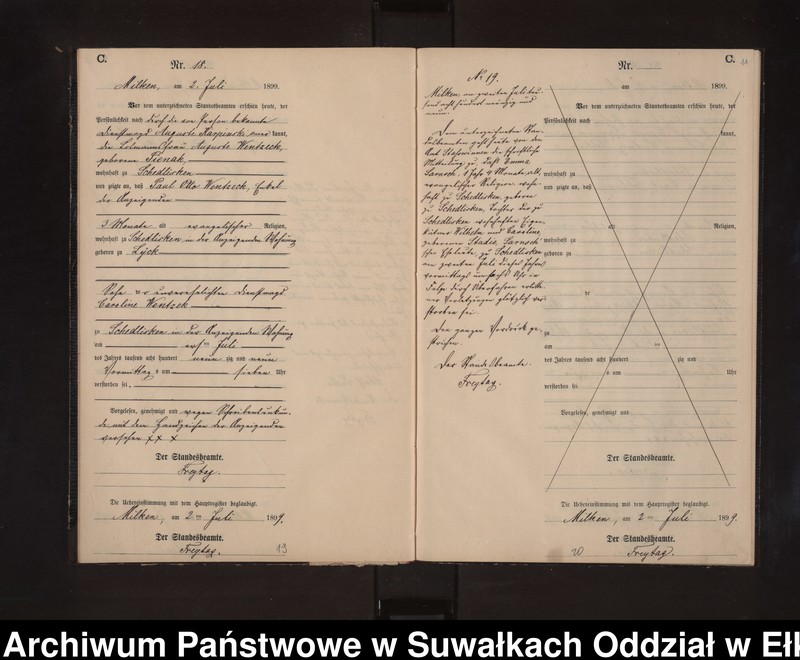 C.
Nr. 18.
Milken, am 2. Juli 1899.
Vor dem unterzeichneten Standesbeamten erschien heute, der
Persönlichkeit nach durch die von Person bekannte
Dienstmagd Auguste Karpinski anerkannt,
die Losmannsfrau Auguste Wentzeck,
geborene Pienak,
wohnhaft zu Schedlisken
und zeigte an, daß Paul Otto Wentzeck, Enkel
der Anzeigenden
3 Monate alt evangelischer Religion,
wohnhaft zu Schedlisken in der Anzeigenden Wohnung
geboren zu Lyck
Sohn der unverehelichten Dienstmagd
Caroline Wentzek
zu Schedlisken in der Anzeigenden Wohnung
am Juli
des Jahres tausend acht hundert neunzig und neun
Vormittags um sieben Uhr
verstorben sei.
Vorgelesen, genehmigt und wegen Schreibensunkun-
de mit dem Handzeichen der Anzeigenden
versehen x x x
Der Standesbeamte.
Freytag.
Die Uebereinstimmung mit dem Hauptregister beglaubigt.
Milken, am 2ten Juli 1899.
Der Standesbeamte.
Freytag.
19
C.
No 19.
Milken am zweiten Juli tau-
send acht hundert neunzig und
neun.
Dem unterzeichneten Stan-
desbeamten geht heute von dem
Amt die schriftliche
Mittheilung zu, daß Emma
4 Monate alt,
evangelischer Religion, wohn-
haft zu Schedlisken, geboren
zu Schedlisken, Tochter der zu
Schedlisken wohnhaften
Wilhelm und Caroline,
geborenen
Eheleute, zu Schedlisken
am zweiten Juli dieses Jahres
vormittags um Uhr in
Folge
plötzlich ver-
storben sei.
Der ganze Vordruck ge-
strichen.
Der Standesbeamte.
Freytag.
Nr.
am 1899.
Vor dem unterzeichneten Standesbeamten erschien heute, der
Persönlichkeit nach
kannt,
wohnhaft zu
und zeigte an, daß
alt Religion,
wohnhaft zu
geboren zu
zu
am
des Jahres tausend acht hundert zig und
um Uhr
verstorben sei
Vorgelesen, genehmigt und
Der Standesbeamte.
Die Uebereinstimmung mit dem Hauptregister beglaubigt.
Milken, am 2ten Juli 1899.
Der Standesbeamte.
20 Freytag.
Archiwum Państwowe w Suwałkach Oddział w Ełk